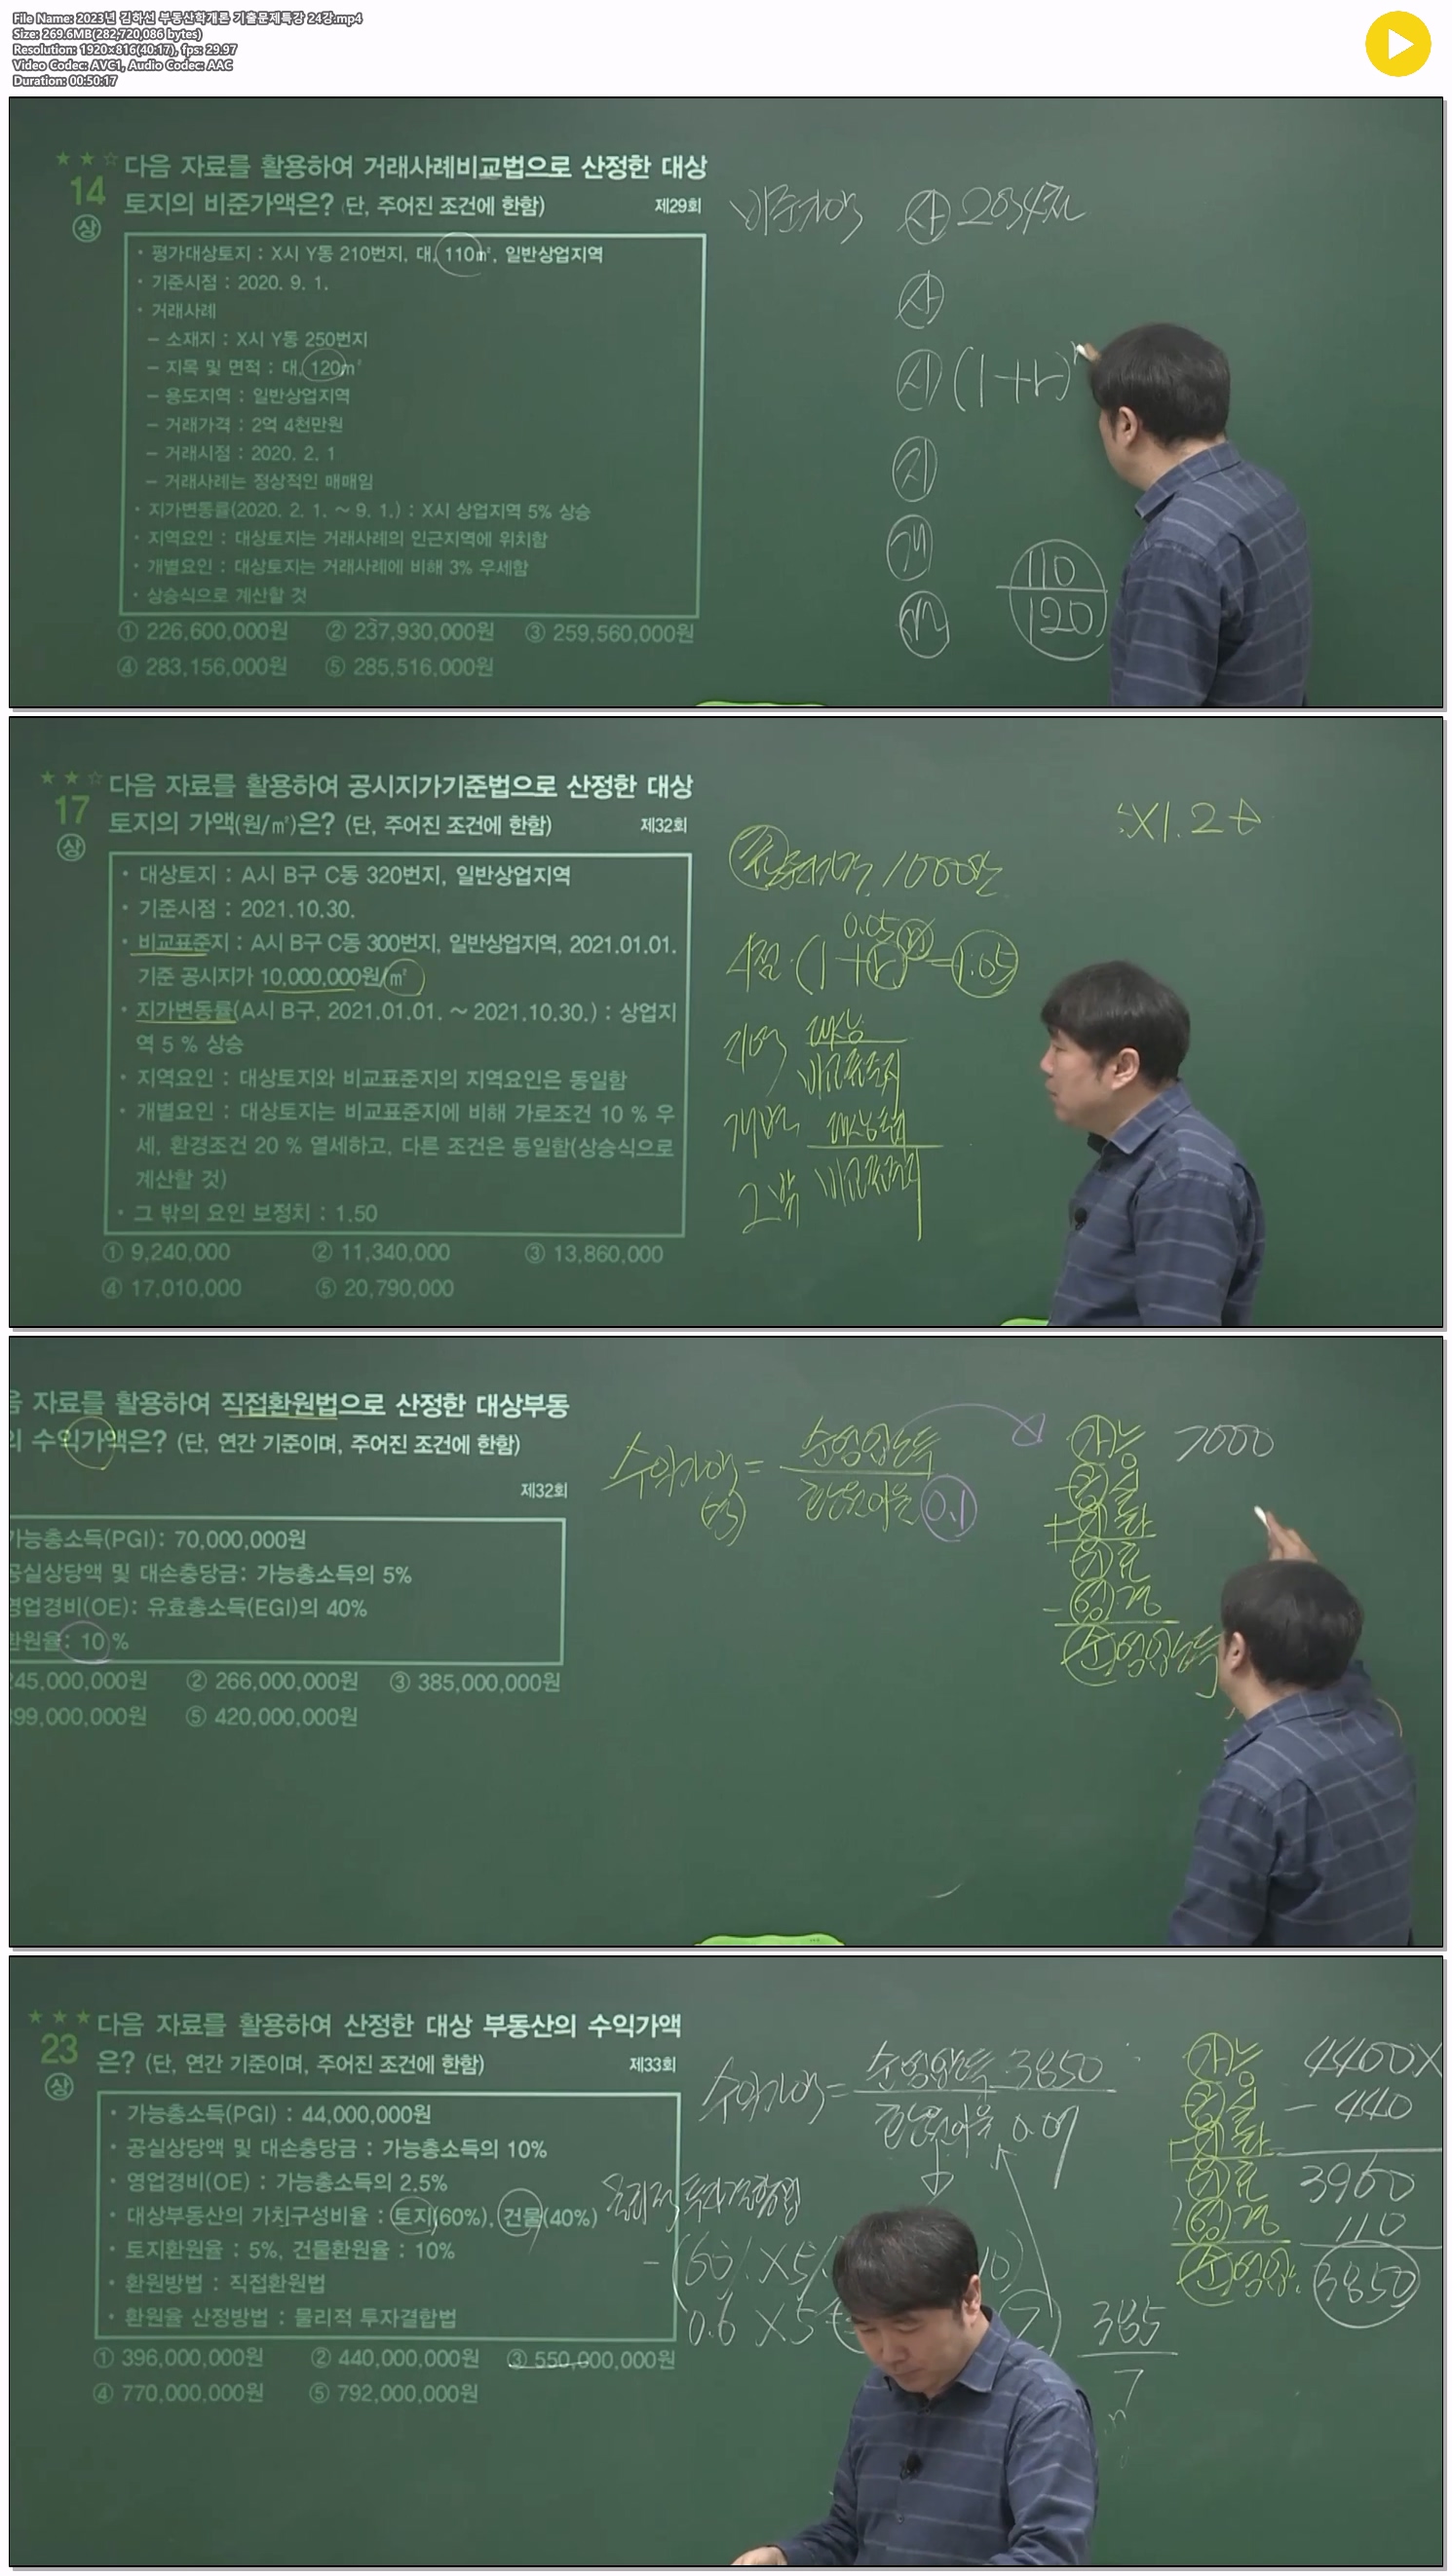 File Name: 2023년 김하선 부동산학개론 기출문제특강 24강.mp4
Size: 269.6MB(282,720,086 bytes)
Resolution: 1920×816(40:17), fps: 29.97
Video Codec: AVC1, Audio Codec: AAC
Duration: 00:50:17
★ ★ ☆ 다음 자료를 활용하여 거래사례비교법으로 산정한 대상
14 토지의 비준가액은? (단, 주어진 조건에 한함) 제29회
상
• 평가대상토지 : X시 Y동 210번지, 대, 110㎡, 일반상업지역
• 기준시점 : 2020. 9. 1.
• 거래사례
– 소재지 : X시 Y동 250번지
– 지목 및 면적 : 대, 120㎡
– 용도지역 : 일반상업지역
– 거래가격 : 2억 4천만원
– 거래시점 : 2020. 2. 1
– 거래사례는 정상적인 매매임
• 지가변동률(2020. 2. 1. ~ 9. 1.) : X시 상업지역 5% 상승
• 지역요인 : 대상토지는 거래사례의 인근지역에 위치함
• 개별요인 : 대상토지는 거래사례에 비해 3% 우세함
• 상승식으로 계산할 것
① 226,600,000원 ② 237,930,000원 ③ 259,560,000원
④ 283,156,000원 ⑤ 285,516,000원
비준가액 사
사
시 (1+r)
지
개
면 110
120
★ ★ ☆ 다음 자료를 활용하여 공시지가기준법으로 산정한 대상
17 토지의 가액(원/㎡)은? (단, 주어진 조건에 한함) 제32회
상
• 대상토지 : A시 B구 C동 320번지, 일반상업지역
• 기준시점 : 2021.10.30.
• 비교표준지 : A시 B구 C동 300번지, 일반상업지역, 2021.01.01.
기준 공시지가 10,000,000원/㎡
• 지가변동률(A시 B구, 2021.01.01. ~ 2021.10.30.) : 상업지
역 5 % 상승
• 지역요인 : 대상토지와 비교표준지의 지역요인은 동일함
• 개별요인 : 대상토지는 비교표준지에 비해 가로조건 10 % 우
세, 환경조건 20 % 열세하고, 다른 조건은 동일함(상승식으로
계산할 것)
• 그 밖의 요인 보정치 : 1.50
① 9,240,000 ② 11,340,000 ③ 13,860,000
④ 17,010,000 ⑤ 20,790,000
X1.2
1000만
0.05
시점 (1+r) = 1.05
지역 대상
비교표준지
개별
비교표준지
그밖
음 자료를 활용하여 직접환원법으로 산정한 대상부동
의 수익가액은? (단, 연간 기준이며, 주어진 조건에 한함)
제32회
가능총소득(PGI): 70,000,000원
공실상당액 및 대손충당금: 가능총소득의 5%
영업경비(OE): 유효총소득(EGI)의 40%
환원율: 10 %
245,000,000원 ② 266,000,000원 ③ 385,000,000원
399,000,000원 ⑤ 420,000,000원
수익가액 = 순영업소득
환원이율 0.1
가능 7000
공실
+ 기타
유효
- 영경
순영업소득
★ ★ ★ 다음 자료를 활용하여 산정한 대상 부동산의 수익가액
23 은? (단, 연간 기준이며, 주어진 조건에 한함) 제33회
상
• 가능총소득(PGI) : 44,000,000원
• 공실상당액 및 대손충당금 : 가능총소득의 10%
• 영업경비(OE) : 가능총소득의 2.5%
• 대상부동산의 가치구성비율 : 토지(60%), 건물(40%)
• 토지환원율 : 5%, 건물환원율 : 10%
• 환원방법 : 직접환원법
• 환원율 산정방법 : 물리적 투자결합법
① 396,000,000원 ② 440,000,000원 ③ 550,000,000원
④ 770,000,000원 ⑤ 792,000,000원
수익가액 = 순영업소득 3850
환원이율 0.07
물리적 투자결합법
(60% X5%
0.6 X5
385
7
가능 4400
공실 - 440
기타
유효 3960
영경 110
순영업 3850